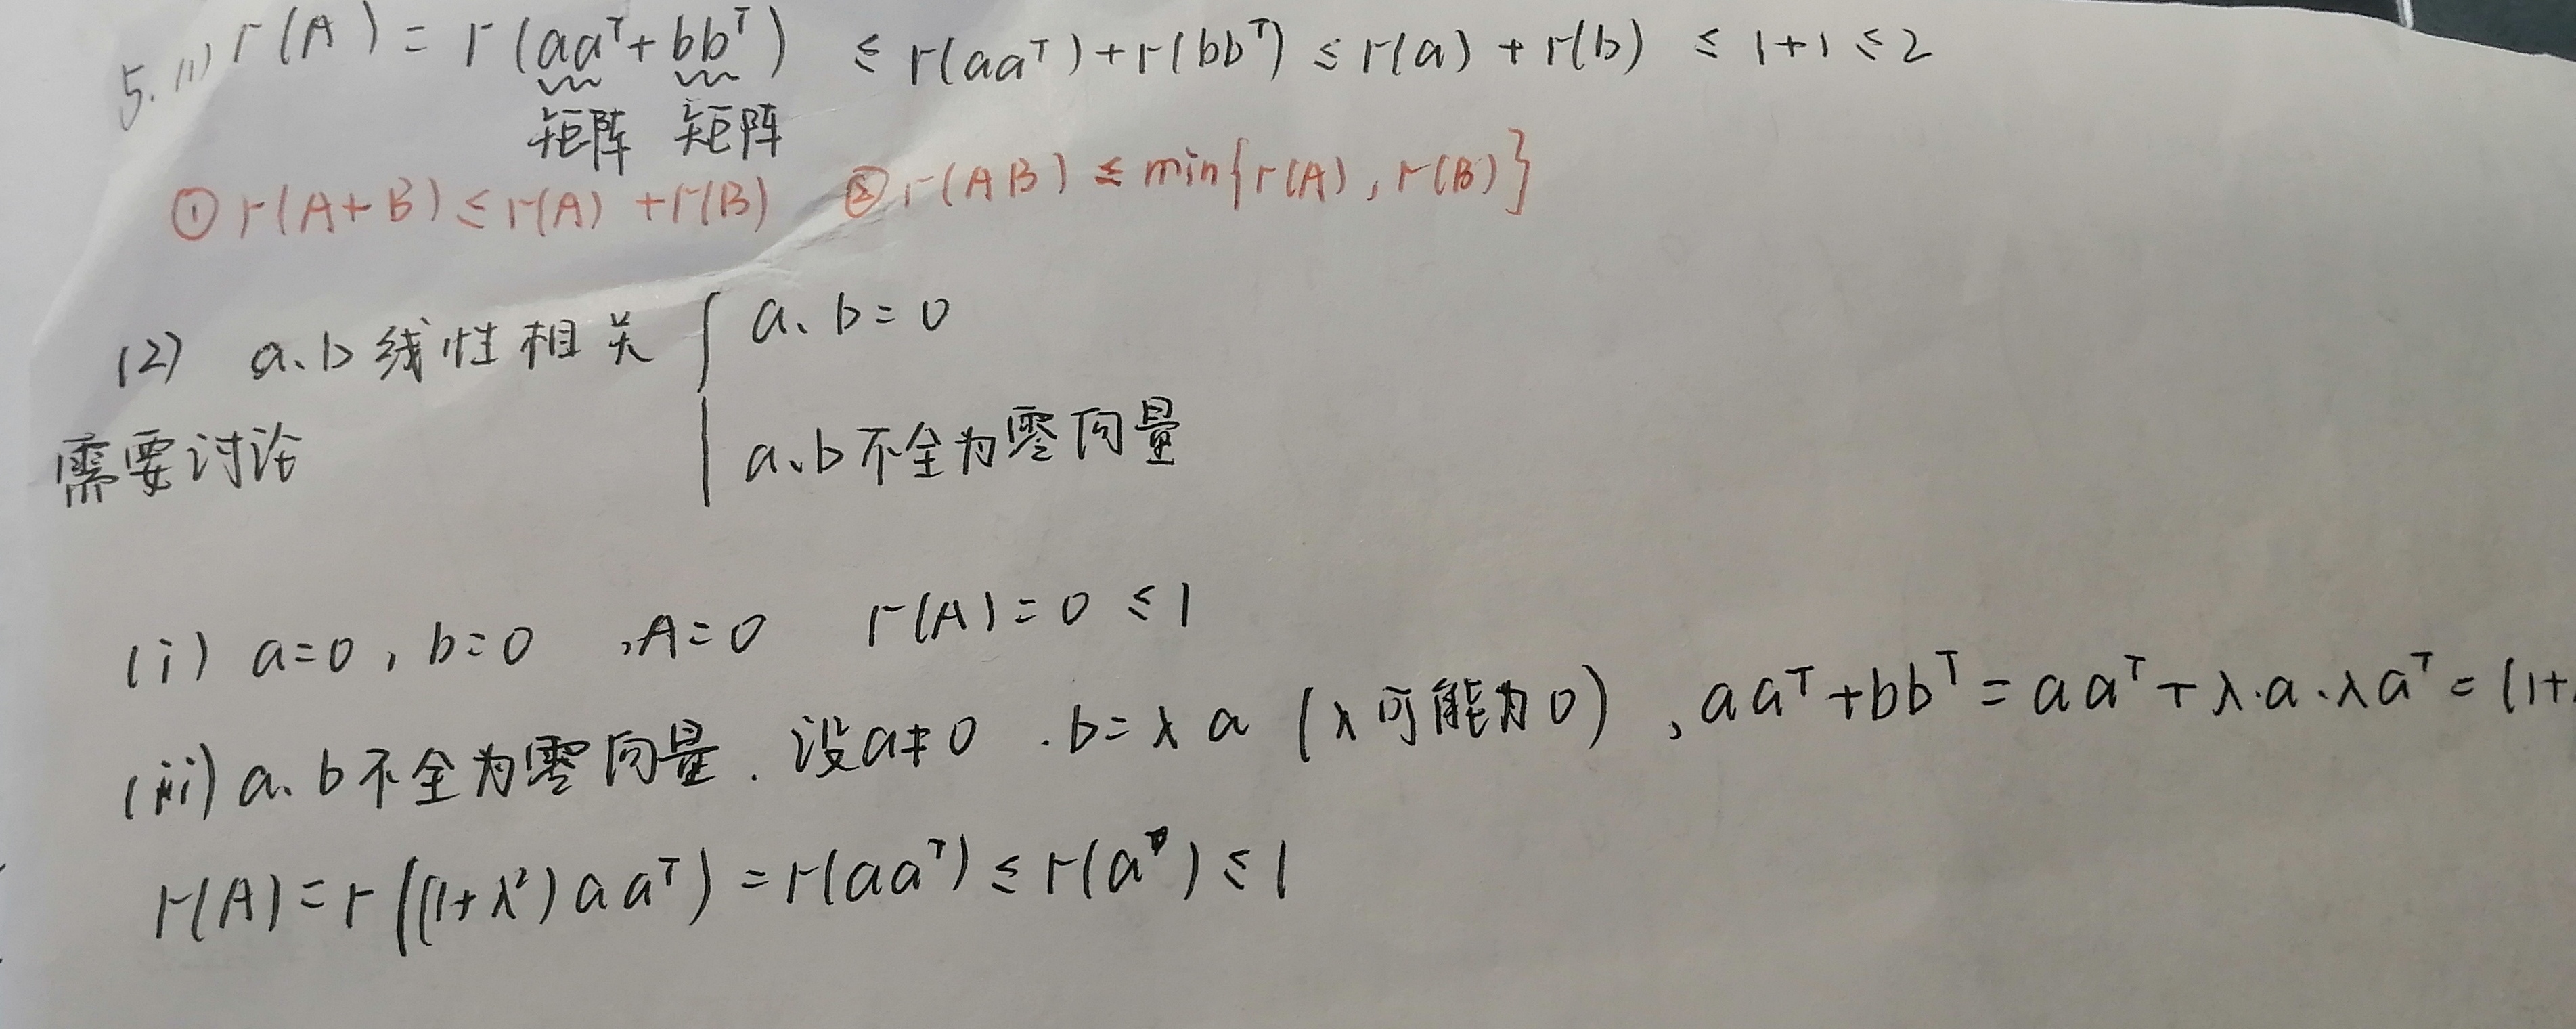 5.(1) r(A) = r(aaᵀ+bbᵀ) ≤ r(aaᵀ)+r(bbᵀ) ≤ r(a)+r(b) ≤ 1+1 ≤ 2
矩阵 矩阵
① r(A+B) ≤ r(A)+r(B) ② r(AB) ≤ min{r(A), r(B)}
(2) a、b线性相关 { a、b=0
需要讨论 a、b不全为零向量
(i) a=0, b=0 , A=0 r(A)=0 ≤1
(ii) a、b不全为零向量. 设a≠0 . b=λa (λ可能为0) , aaᵀ+bbᵀ=aaᵀ+λ·a·λaᵀ=(1+
r(A)=r((1+λ²)aaᵀ)=r(aaᵀ) ≤ r(a) ≤ 1